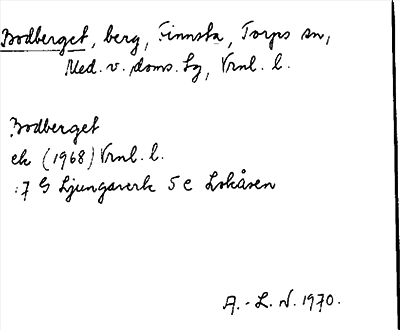 Bodberget, berg, Finnsta, Torps sn,
Med. v. doms. tg, Vrnl. l.
Bodberget
ek (1968) Vrnl. l.
:7 G Ljungaverk 5 e Lokåsen
A.-L. N. 1970.